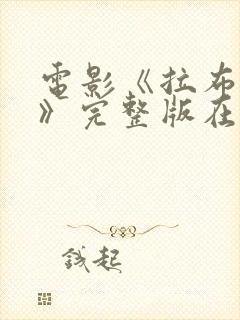 電影《拉布
》完整版在
錢起